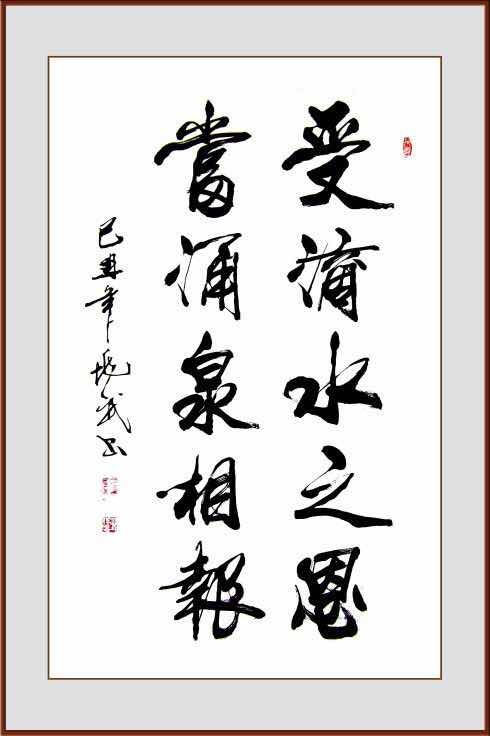 受滴水之恩
當涌泉相報
己丑年 武书